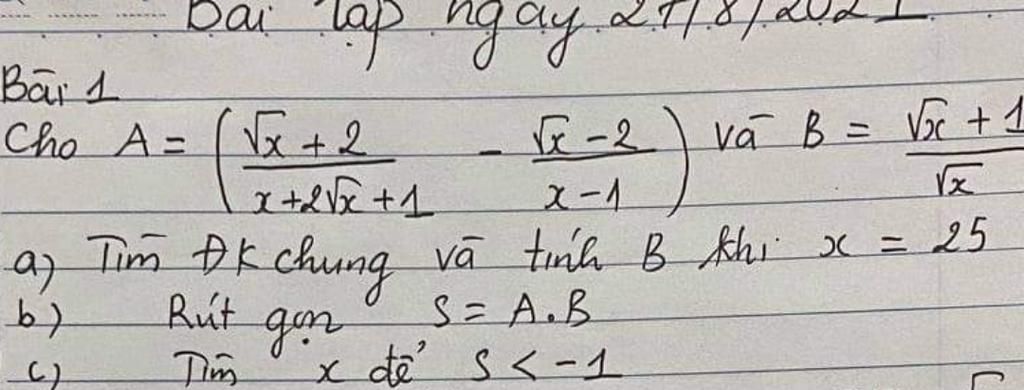 Bài tập ngày 27/8/2021
Bài 1
Cho A = (\frac{√x + 2}{x + 2√x + 1} - \frac{√x - 2}{x - 1}) và B = \frac{√x + 1}{√x}
a) Tìm ĐK chung và tính B khi x = 25
b) Rút gọn S = A.B
c) Tìm x để S < -1